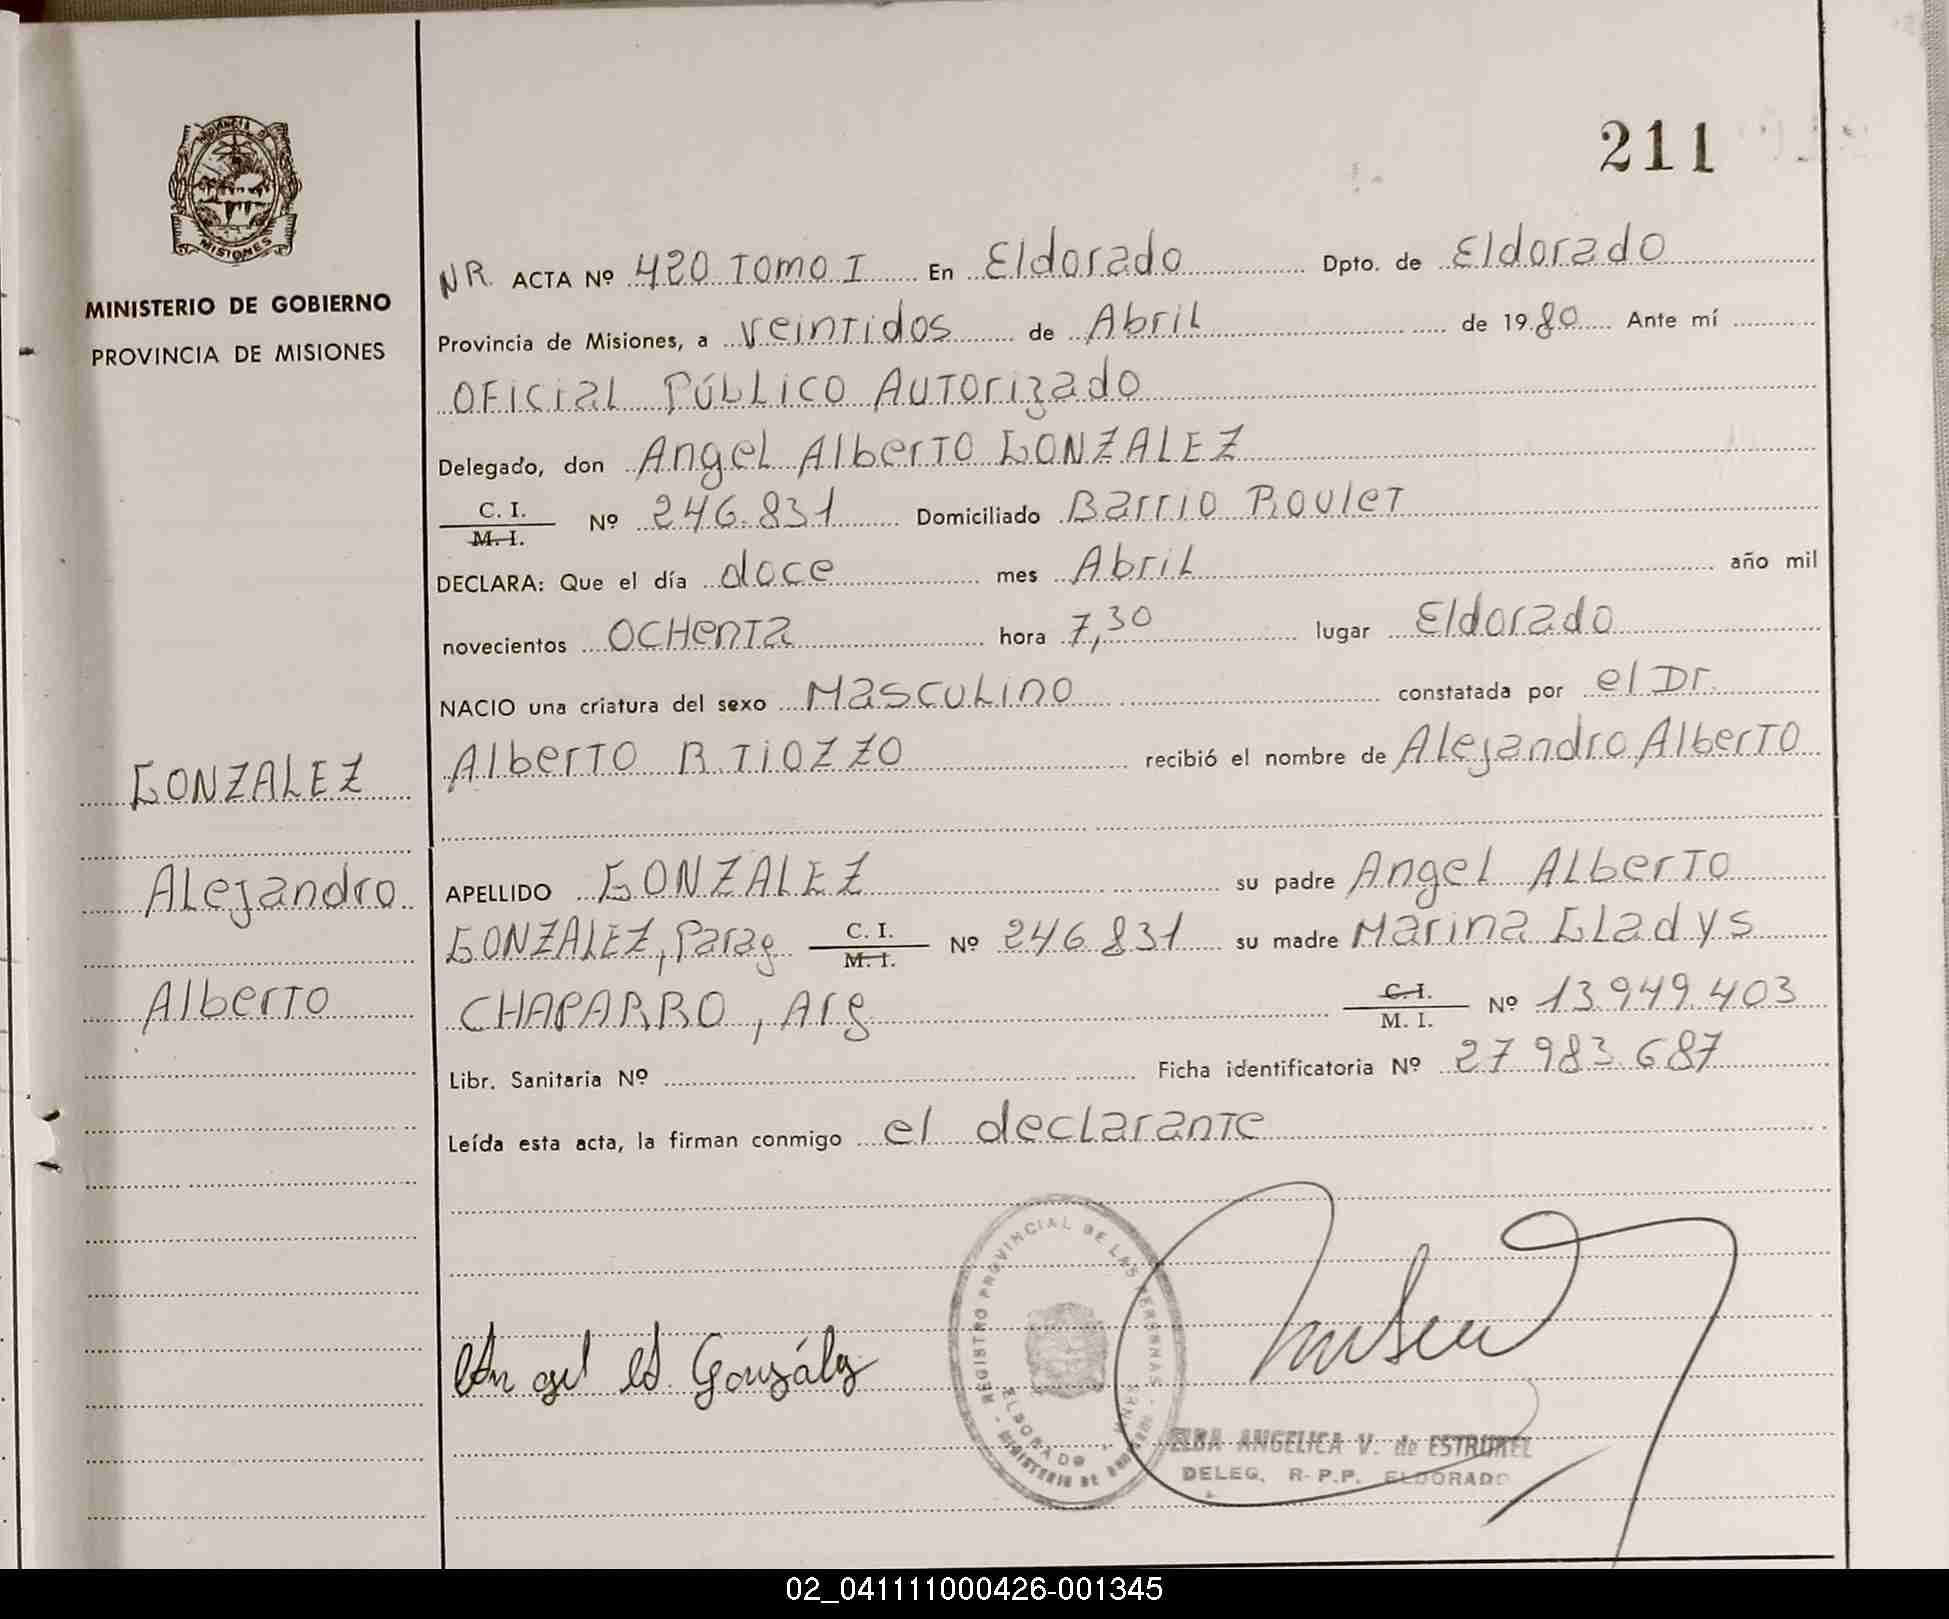 211
PROVINCIA DE
MISIONES
MINISTERIO DE GOBIERNO
PROVINCIA DE MISIONES
GONZALEZ
Alejandro
Alberto
NR. ACTA Nº 420 Tomo I En Eldorado Dpto. de Eldorado
Provincia de Misiones, a veintidos de Abril de 1980 Ante mí
Oficial Público Autorizado
Delegado, don Angel Alberto GONZALEZ
C. I. M. I. Nº 246.831 Domiciliado Barrio Roulet
DECLARA: Que el día doce mes Abril año mil
novecientos ochenta hora 7,30 lugar Eldorado
NACIO una criatura del sexo Masculino constatada por el Dr.
Alberto R. TIOZZO recibió el nombre de Alejandro Alberto
APELLIDO GONZALEZ su padre Angel Alberto
GONZALEZ, Parag C. I. M. I. Nº 246 831 su madre Marina Gladys
CHAPARRO, Arg C. I. M. I. Nº 13.949.403
Libr. Sanitaria Nº Ficha identificatoria Nº 27 983.687
Leída esta acta, la firman conmigo el declarante
Angel A. González
REGISTRO PROVINCIAL DE LAS PERSONAS
ELDORADO
MINISTERIO DE
ELBA ANGELICA V. de
DELEG. R.P.P. ELDORADO
02_041111000426-001345